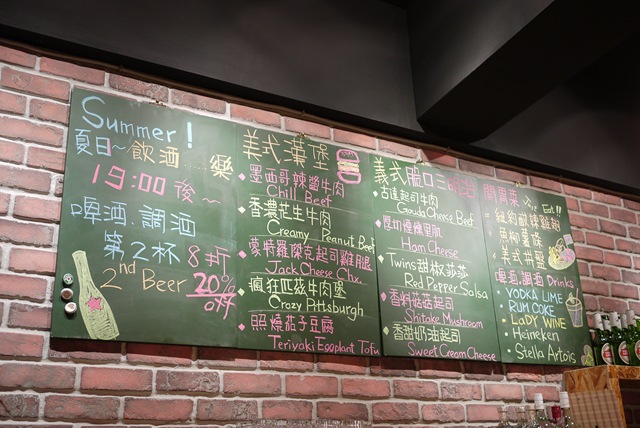 Summer!
夏日~飲酒....樂
19:00 後~
啤酒.調酒
第2杯 8折
2nd Beer 20% off
美式漢堡
墨西哥辣醬牛肉
Chill Beef
香濃花生牛肉
Creamy Peanut Beef
蒙特羅傑克起司雞腿
Jack Cheese Chx.
瘋狂匹茲牛肉堡
Crazy Pittsburgh
照燒茄子豆腐
Teriyaki Eggplant Tofu
義式脆口三明治
古達起司牛肉
Gouda Cheese Beef
厚切煙燻里肌
Ham Cheese
Twins 甜椒莎莎
Red Pepper Salsa
香料菇菇起司
Shitake Mushroom
香甜奶油起司
Sweet Cream Cheese
開胃菜 Eat!!
美式拼盤
啤酒.調酒 Drinks
VODKA LIME
RUM COKE
LADY WINE
Heineken
Stella Artois